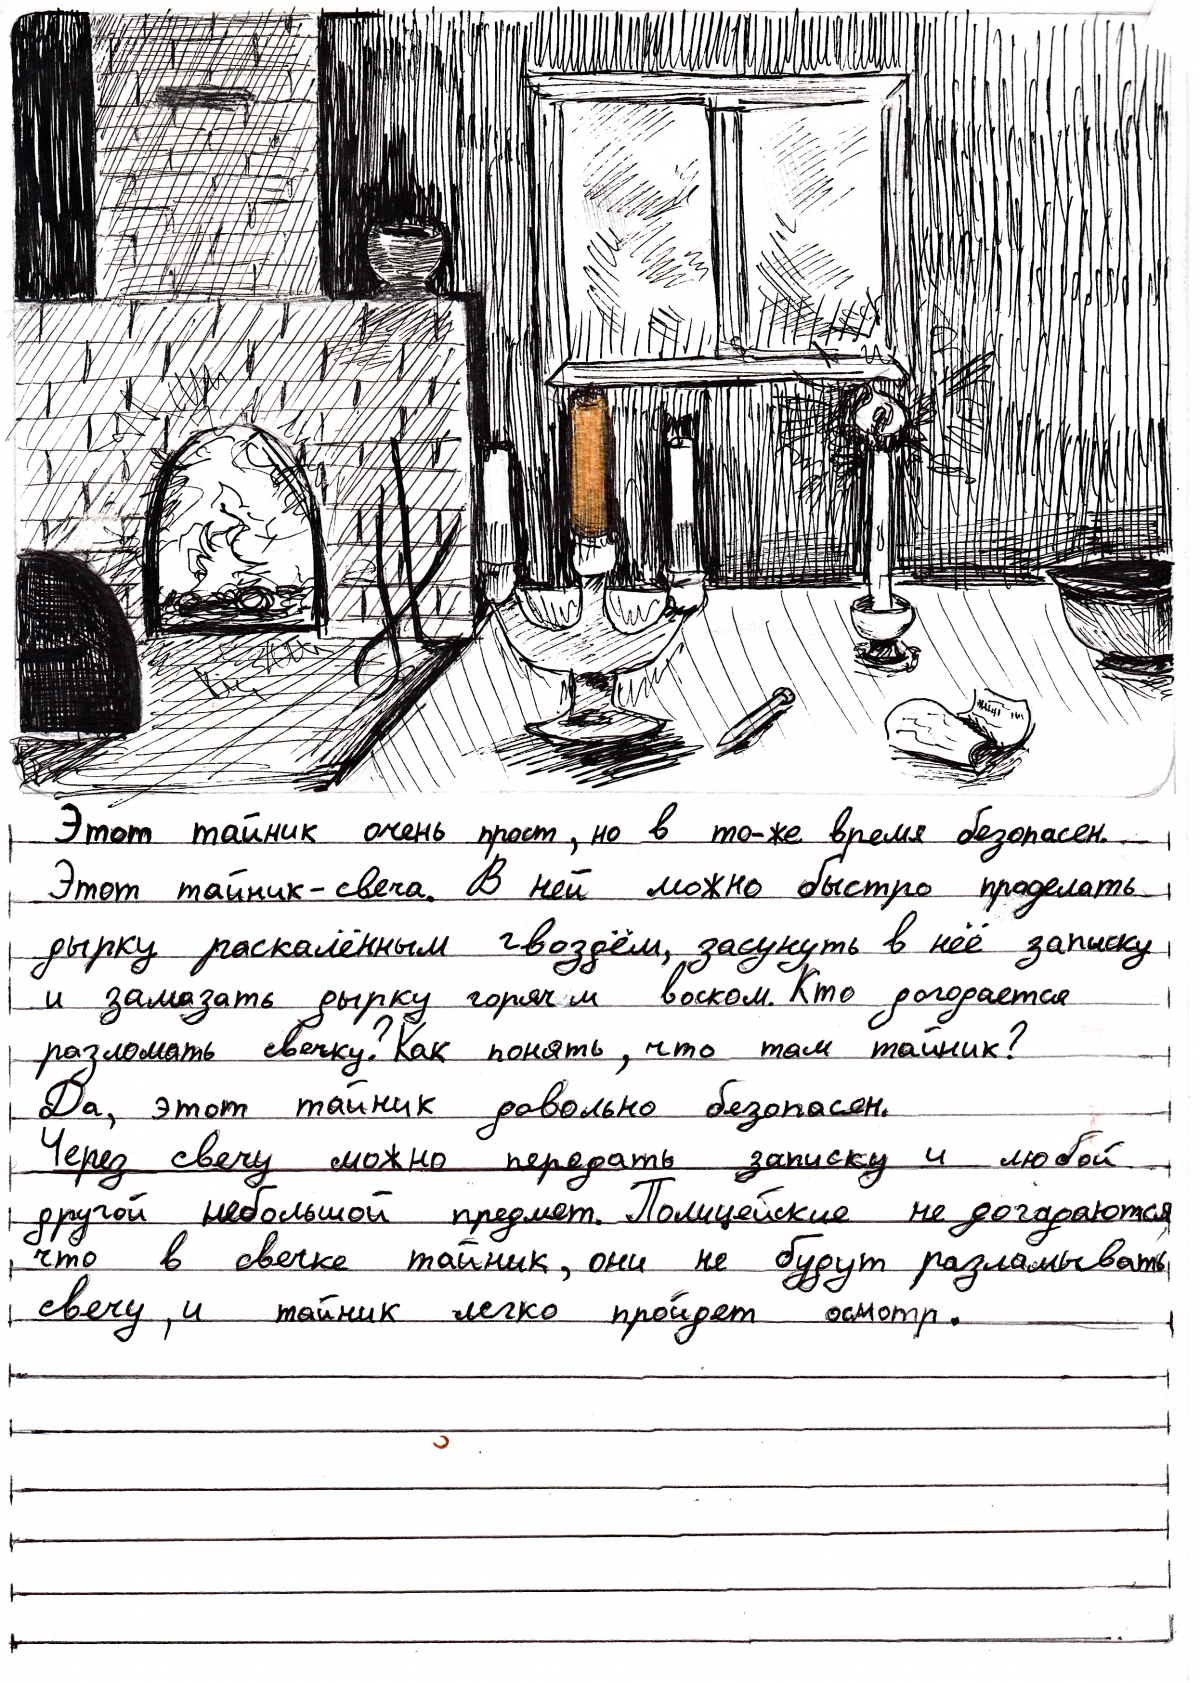 Этот тайник очень прост, но в то-же время безопасен.
Этот тайник-свеча. В ней можно быстро проделать
дырку раскалённым гвоздём, засунуть в нёё записку
и замазать дырку горячим воском. Кто догодается
разломать свечку? Как понять, что там тайник?
Да, этот тайник довольно безопасен.
Через свечу можно передать записку и любой
другой небольшой предмет. Полицейские не догадаются,
что в свечке тайник, они не будут разламывать
свечу, и тайник легко пройдет осмотр.